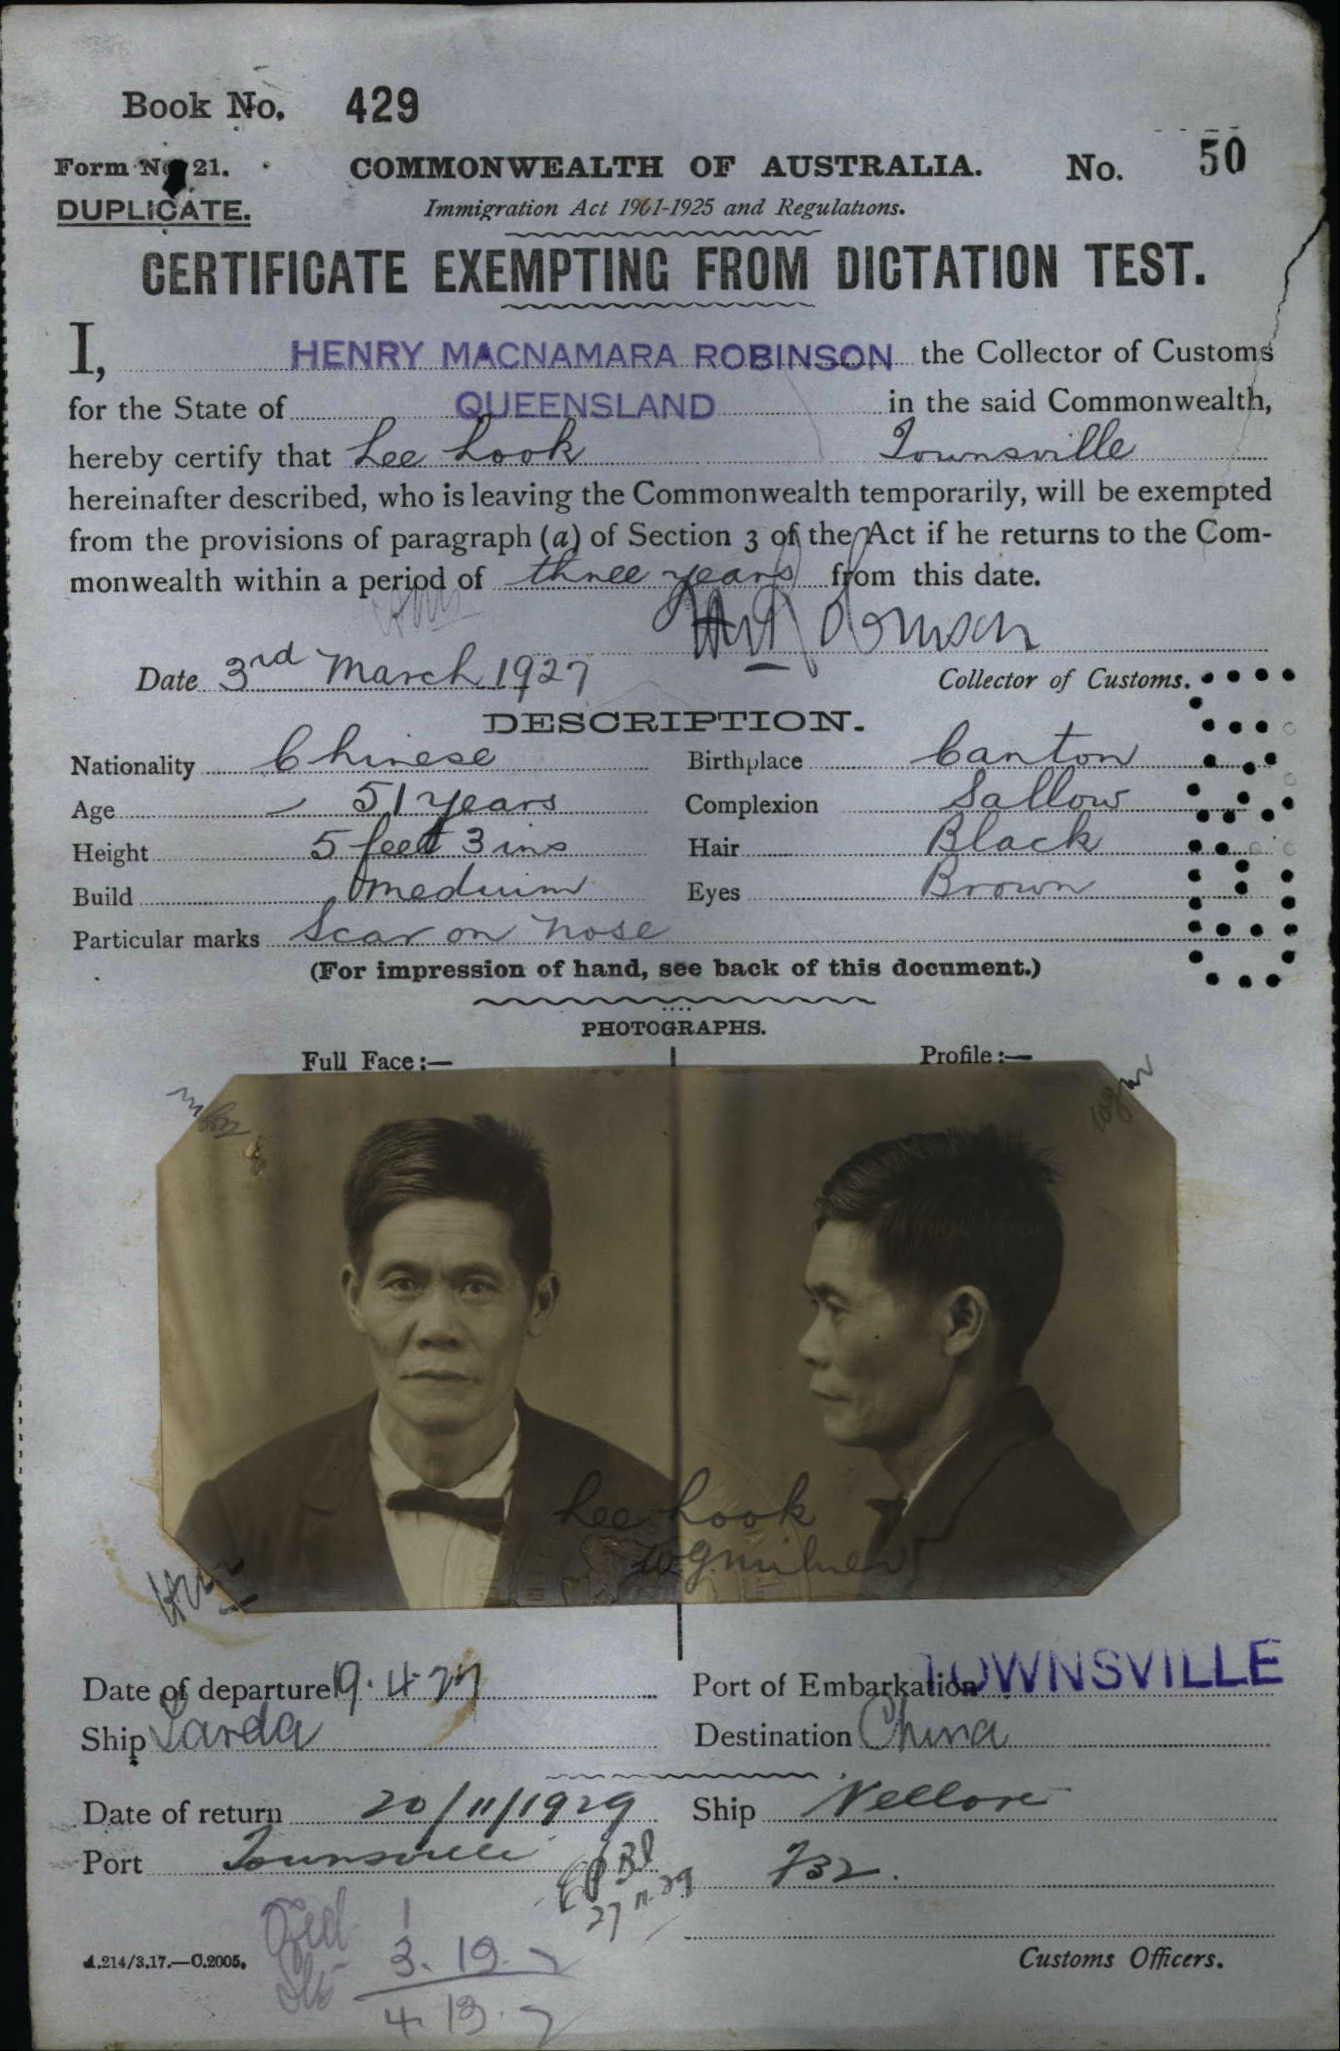 Book No. 429
Form No. 21. COMMONWEALTH OF AUSTRALIA. No. 50
DUPLICATE. Immigration Act 1901-1925 and Regulations.
CERTIFICATE EXEMPTING FROM DICTATION TEST.
I, HENRY MACNAMARA ROBINSON the Collector of Customs
for the State of QUEENSLAND in the said Commonwealth,
hereby certify that Lee Look Townsville
hereinafter described, who is leaving the Commonwealth temporarily, will be exempted
from the provisions of paragraph (a) of Section 3 of the Act if he returns to the Com-
monwealth within a period of three years from this date.
Date 3rd March 1927 Collector of Customs.
DESCRIPTION.
Nationality Chinese Birthplace Canton
Age 51 years Complexion Sallow
Height 5 feet 3 ins Hair Black
Build Medium Eyes Brown
Particular marks Scar on nose
(For impression of hand, see back of this document.)
PHOTOGRAPHS.
Full Face:— Profile:—
Lee Look
W.G. Milner
Date of departure 19.4.27 Port of Embarkation TOWNSVILLE
Ship Tarda Destination China
Date of return 20/11/1929 Ship Nellore
Port Townsville
27.11.29
3.19.7
A.214/3.17.—C.2005. Customs Officers.
4.19.7